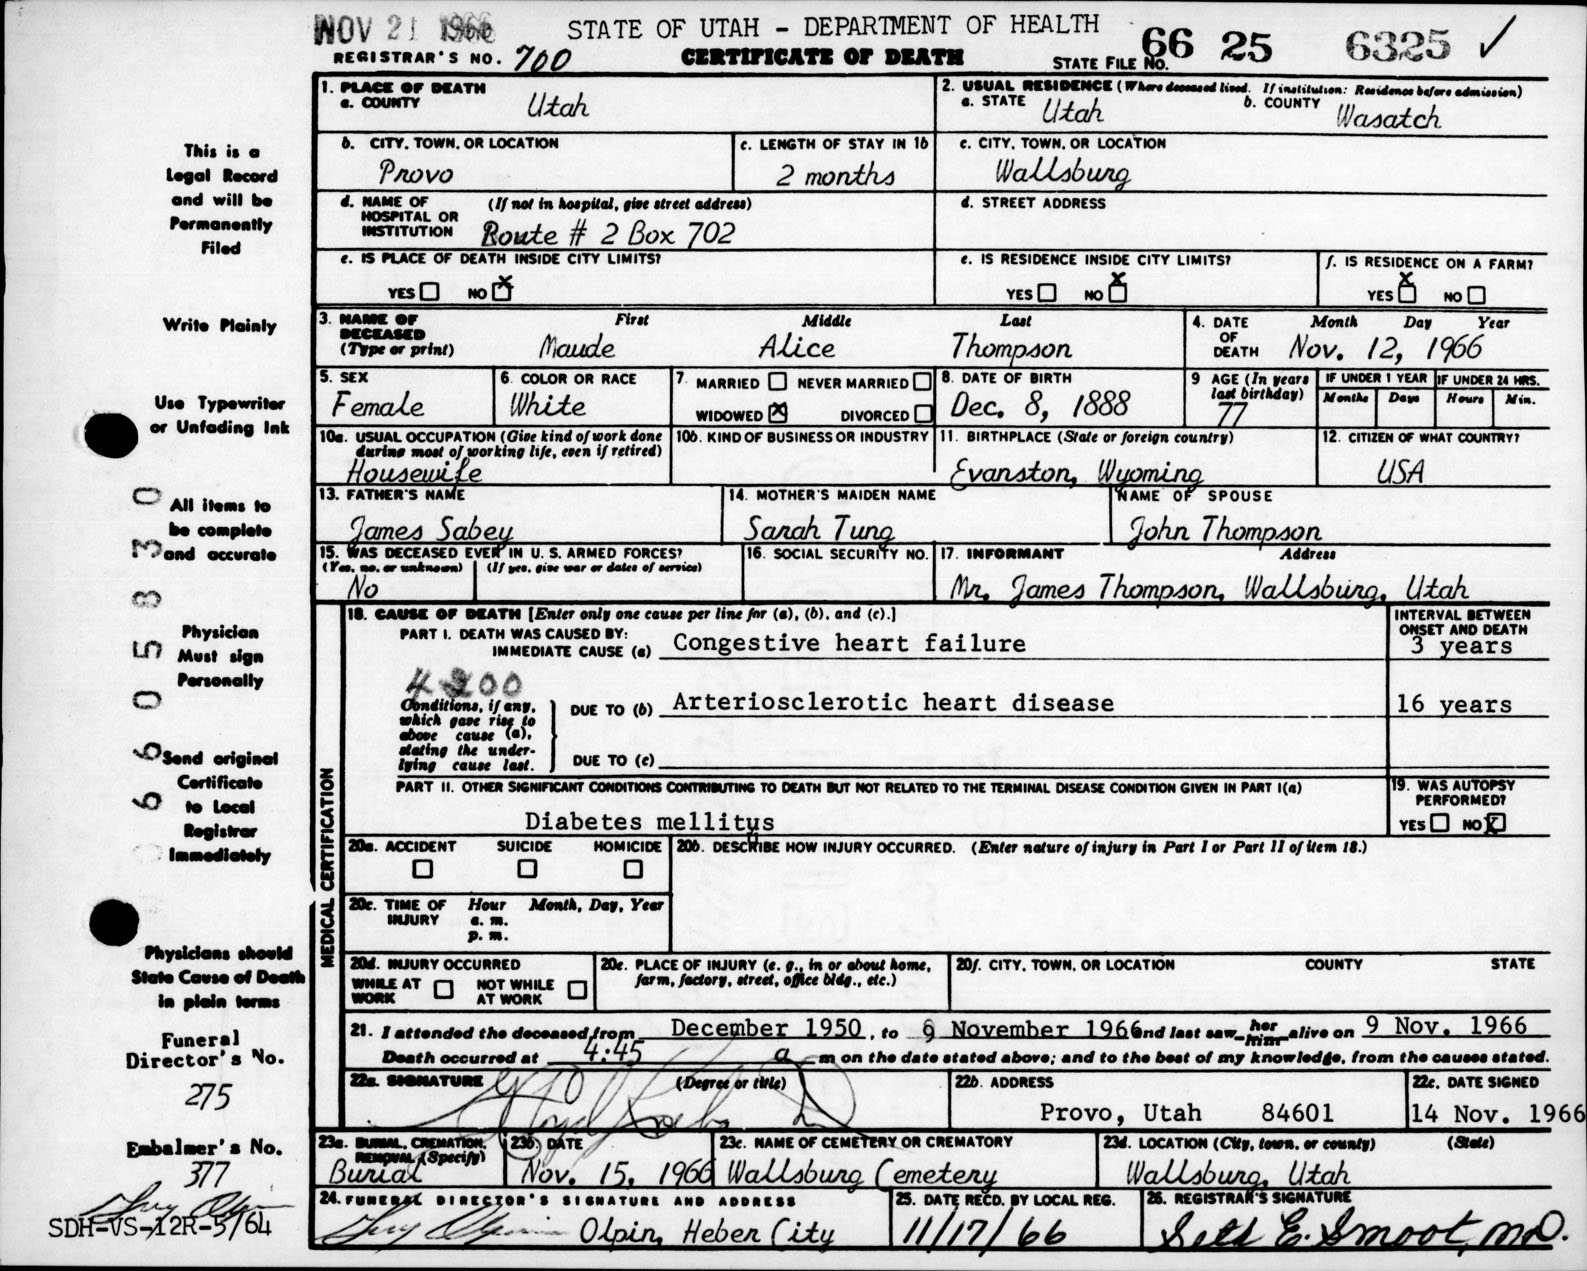 NOV 21 1966
STATE OF UTAH – DEPARTMENT OF HEALTH
66 25 6325 ✓
REGISTRAR'S NO. 700
CERTIFICATE OF DEATH
STATE FILE NO.
1. PLACE OF DEATH
a. COUNTY Utah
2. USUAL RESIDENCE (Where deceased lived. If institution: Residence before admission)
a. STATE Utah b. COUNTY Wasatch
b. CITY, TOWN, OR LOCATION
Provo
c. LENGTH OF STAY IN 1b
2 months
c. CITY, TOWN, OR LOCATION
Wallsburg
d. NAME OF HOSPITAL OR INSTITUTION (If not in hospital, give street address)
Route # 2 Box 702
d. STREET ADDRESS
e. IS PLACE OF DEATH INSIDE CITY LIMITS?
YES NO X
e. IS RESIDENCE INSIDE CITY LIMITS?
YES NO X
f. IS RESIDENCE ON A FARM?
YES X NO
3. NAME OF DECEASED (Type or print)
First Middle Last
Maude Alice Thompson
4. DATE OF DEATH Month Day Year
Nov. 12, 1966
5. SEX
Female
6. COLOR OR RACE
White
7. MARRIED NEVER MARRIED
WIDOWED X DIVORCED
8. DATE OF BIRTH
Dec. 8, 1888
9 AGE (In years last birthday)
77
IF UNDER 1 YEAR IF UNDER 24 HRS.
Months Days Hours Min.
10a. USUAL OCCUPATION (Give kind of work done during most of working life, even if retired)
Housewife
10b. KIND OF BUSINESS OR INDUSTRY
11. BIRTHPLACE (State or foreign country)
Evanston, Wyoming
12. CITIZEN OF WHAT COUNTRY?
USA
13. FATHER'S NAME
James Sabey
14. MOTHER'S MAIDEN NAME
Sarah Tung
NAME OF SPOUSE
John Thompson
15. WAS DECEASED EVER IN U. S. ARMED FORCES?
(Yes, no, or unknown) (If yes, give war or dates of service)
No
16. SOCIAL SECURITY NO.
17. INFORMANT Address
Mr. James Thompson, Wallsburg, Utah
MEDICAL CERTIFICATION
18. CAUSE OF DEATH [Enter only one cause per line for (a), (b), and (c).]
INTERVAL BETWEEN ONSET AND DEATH
PART I. DEATH WAS CAUSED BY:
IMMEDIATE CAUSE (a) Congestive heart failure 3 years
4200
Conditions, if any, which gave rise to above cause (a), stating the underlying cause last.
DUE TO (b) Arteriosclerotic heart disease 16 years
DUE TO (c)
PART II. OTHER SIGNIFICANT CONDITIONS CONTRIBUTING TO DEATH BUT NOT RELATED TO THE TERMINAL DISEASE CONDITION GIVEN IN PART I(a)
Diabetes mellitus
19. WAS AUTOPSY PERFORMED?
YES NO X
20a. ACCIDENT SUICIDE HOMICIDE
20b. DESCRIBE HOW INJURY OCCURRED. (Enter nature of injury in Part I or Part II of item 18.)
20c. TIME OF INJURY Hour Month, Day, Year
a. m.
p. m.
20d. INJURY OCCURRED
WHILE AT WORK NOT WHILE AT WORK
20e. PLACE OF INJURY (e. g., in or about home, farm, factory, street, office bldg., etc.)
20f. CITY, TOWN, OR LOCATION COUNTY STATE
21. I attended the deceased from December 1950, to 9 November 1966 and last saw her him alive on 9 Nov. 1966
Death occurred at 4:45 a m on the date stated above; and to the best of my knowledge, from the causes stated.
22a. SIGNATURE (Degree or title)
22b. ADDRESS
Provo, Utah 84601
22c. DATE SIGNED
14 Nov. 1966
23a. BURIAL, CREMATION, REMOVAL (Specify)
Burial
23b. DATE
Nov. 15, 1966
23c. NAME OF CEMETERY OR CREMATORY
Wallsburg Cemetery
23d. LOCATION (City, town, or county) (State)
Wallsburg, Utah
24. FUNERAL DIRECTOR'S SIGNATURE AND ADDRESS
Olpin, Heber City
25. DATE RECD. BY LOCAL REG.
11/17/66
26. REGISTRAR'S SIGNATURE
Seth E. Smoot, M.D.
This is a
Legal Record
and will be
Permanently
Filed
Write Plainly
Use Typewriter
or Unfading Ink
All items to
be complete
and accurate
Physician
Must sign
Personally
Send original
Certificate
to Local
Registrar
Immediately
Physicians should
State Cause of Death
in plain terms
Funeral
Director's No.
275
Embalmer's No.
377
SDH-VS-12R-5/64